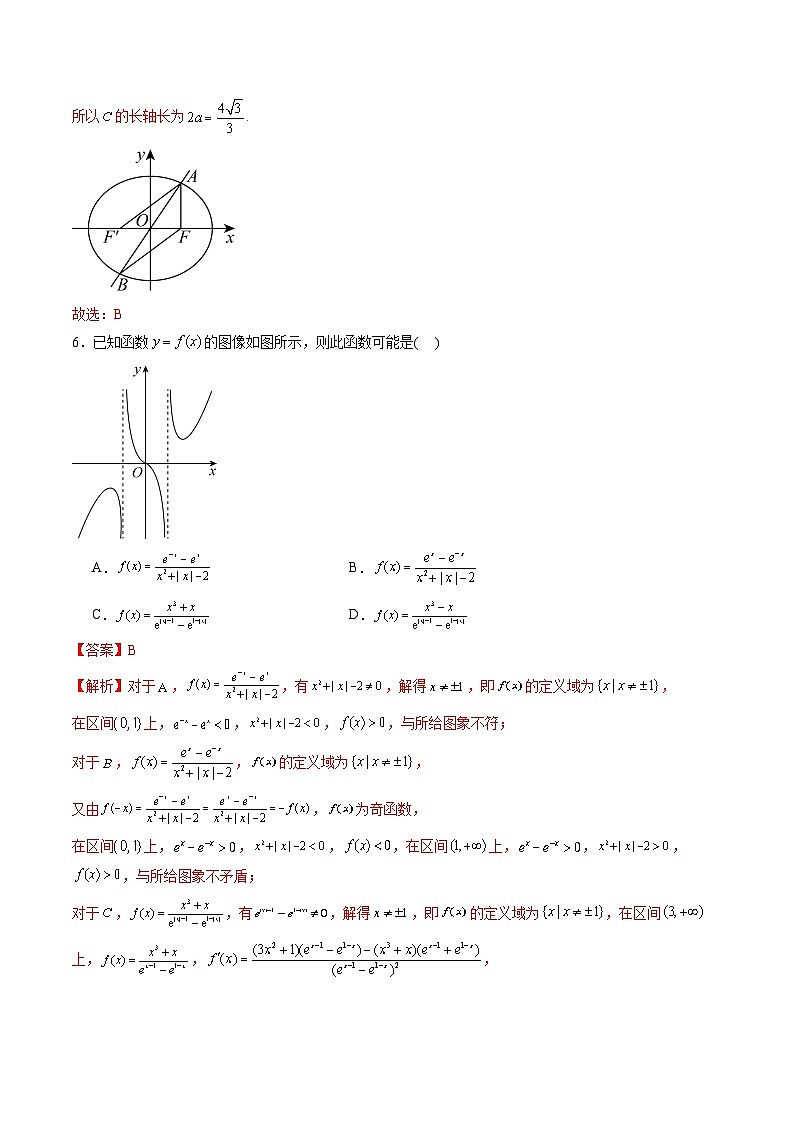 所以C的长轴长为2a=\frac{4\sqrt{3}}{3}.
y
A
O
F′ F x
B
故选：B
6．已知函数y=f(x)的图像如图所示，则此函数可能是( )
y
O x
A．f(x)=\frac{e^{-x}-e^{x}}{x^2+|x|-2} B．f(x)=\frac{e^{x}-e^{-x}}{x^2+|x|-2}
C．f(x)=\frac{x^3+x}{e^{|x|-1}-e^{1-|x|}} D．f(x)=\frac{x^3-x}{e^{|x|-1}-e^{1-|x|}}
【答案】B
【解析】对于A，f(x)=\frac{e^{-x}-e^{x}}{x^2+|x|-2}，有x^2+|x|-2≠0，解得x≠±1，即f(x)的定义域为{x|x≠±1}，
在区间(0,1)上，e^{-x}-e^{x}<0，x^2+|x|-2<0，f(x)>0，与所给图象不符；
对于B，f(x)=\frac{e^{x}-e^{-x}}{x^2+|x|-2}，f(x)的定义域为{x|x≠±1}，
又由f(-x)=\frac{e^{-x}-e^{x}}{x^2+|x|-2}=\frac{e^{x}-e^{-x}}{x^2+|x|-2}=-f(x)，f(x)为奇函数，
在区间(0,1)上，e^{x}-e^{-x}>0，x^2+|x|-2<0，f(x)<0，在区间(1,+∞)上，e^{x}-e^{-x}>0，x^2+|x|-2>0，
f(x)>0，与所给图象不矛盾；
对于C，f(x)=\frac{x^3+x}{e^{|x|-1}-e^{1-|x|}}，有e^{|x|-1}-e^{1-|x|}≠0，解得x≠±1，即f(x)的定义域为{x|x≠±1}，在区间(3,+∞)
上，f(x)=\frac{x^3+x}{e^{x-1}-e^{1-x}}，f′(x)=\frac{(3x^2+1)(e^{x-1}-e^{1-x})-(x^3+x)(e^{x-1}+e^{1-x})}{(e^{x-1}-e^{1-x})^2}，